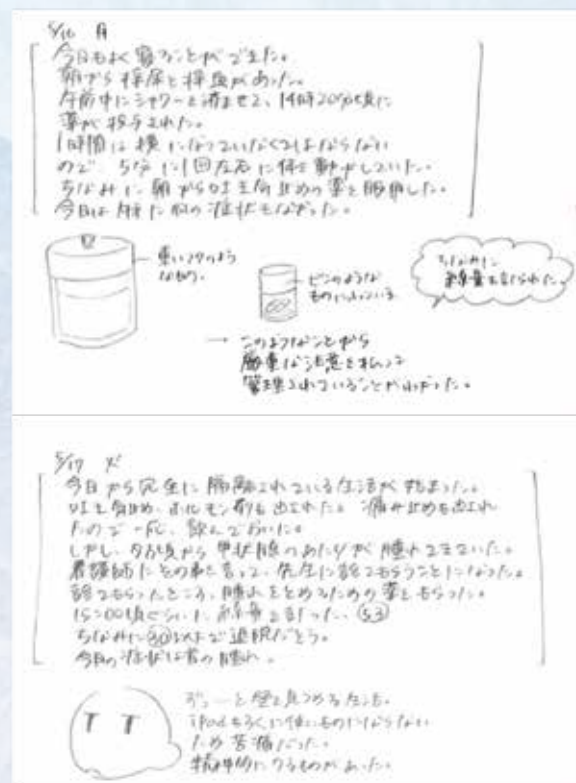 5/16 月
今日もよく寝ることができた。
朝から採尿と採血があった。
午前中にシャワーを済ませて、14時20分頃に
薬が投与された。
1時間は横になっていなくてはならない
ので、5分に1回左右に体を動かしていた。
ちなみに朝から吐き気止めの薬を服用した。
今日は何の症状もなかった。
重いフタのよう
なもの。
ビンのような
ものに入っている
ちなみに
線量も計られた。
→ このようなことから
厳重な注意を払って
管理されていることがわかった。
5/17 火
今日から完全に隔離されている生活が始まった。
吐き気止め、ホルモン剤も出された。痛み止めも出され
たので一応、飲んでおいた。
しかし、夕方頃から甲状腺のあたりが腫れてきていた。
看護師にその事を言って、先生に診てもらうことになった。
診てもらったところ、腫れをとめるための薬をもらった。
15:00頃ぐらいに線量を計った、53
ちなみに30以下で退院だそう。
今日の症状は首の腫れ。
ずっーと壁を見つめる生活。
iPodもろくに使いものにならない
ため苦痛だった。
精神的にくるものがあった。